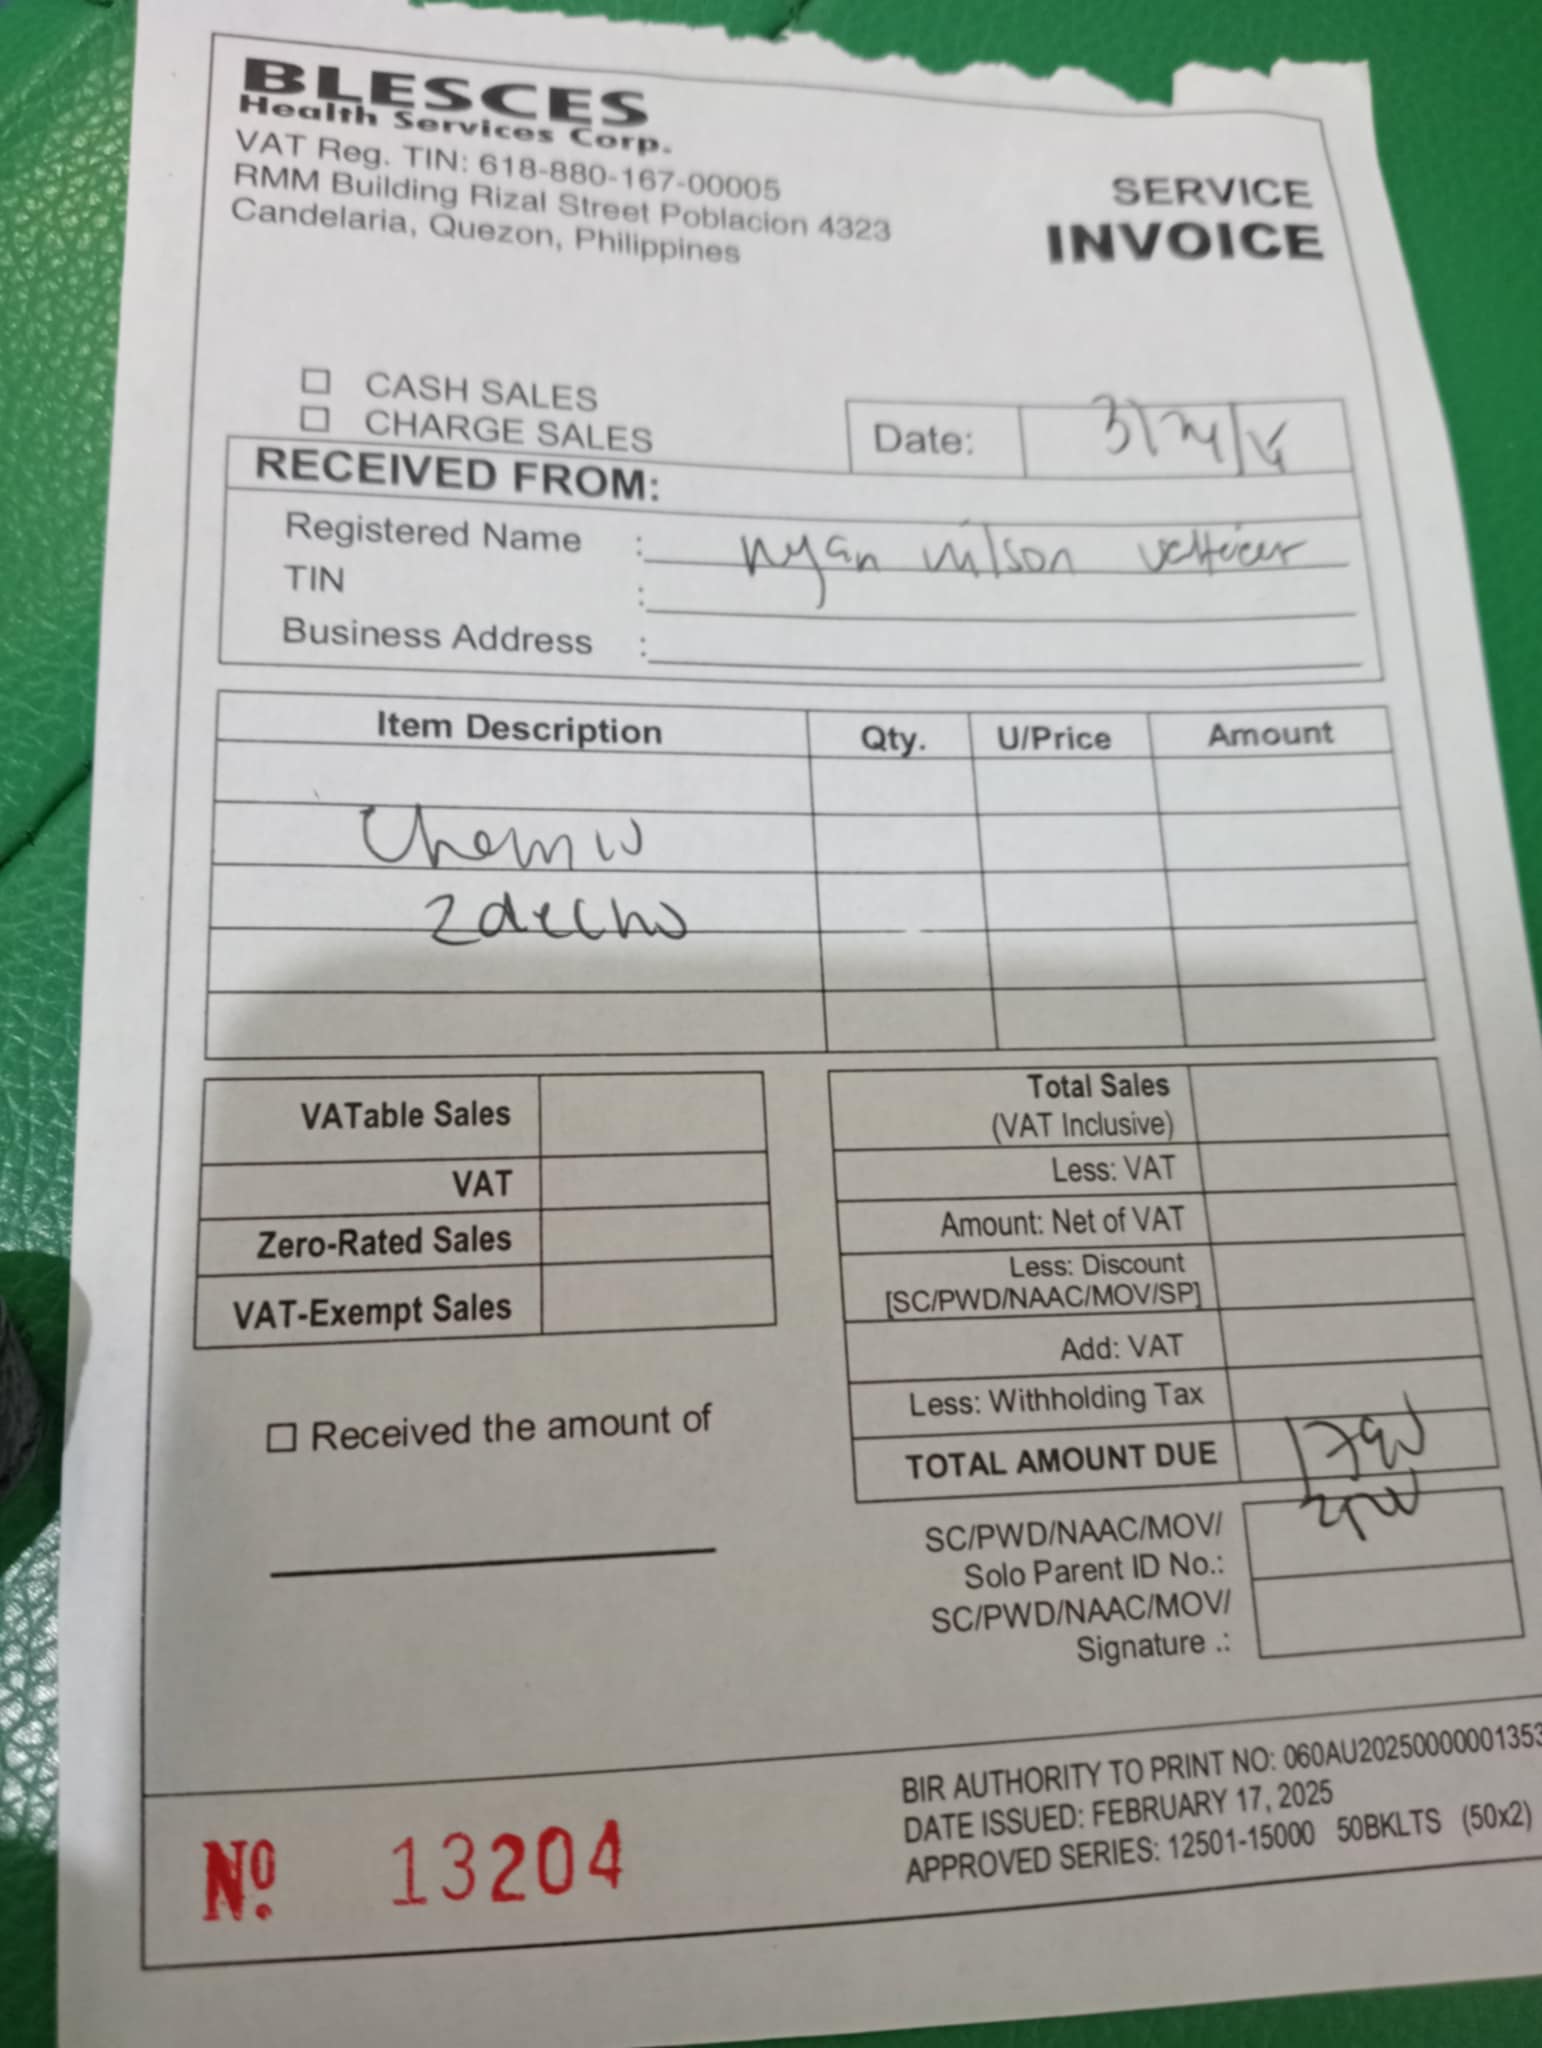 BLESCES
Health Services Corp.
VAT Reg. TIN: 618-880-167-00005
RMM Building Rizal Street Poblacion 4323
Candelaria, Quezon, Philippines
SERVICE
INVOICE
☐ CASH SALES
☐ CHARGE SALES
Date:
RECEIVED FROM:
Registered Name :
TIN :
Business Address :
Item Description Qty. U/Price Amount
2decho
VATable Sales
VAT
Zero-Rated Sales
VAT-Exempt Sales
Total Sales
(VAT Inclusive)
Less: VAT
Amount: Net of VAT
Less: Discount
[SC/PWD/NAAC/MOV/SP]
Add: VAT
Less: Withholding Tax
TOTAL AMOUNT DUE
☐ Received the amount of
SC/PWD/NAAC/MOV/
Solo Parent ID No.:
SC/PWD/NAAC/MOV/
Signature .:
No. 13204
BIR AUTHORITY TO PRINT NO: 060AU20250000001353
DATE ISSUED: FEBRUARY 17, 2025
APPROVED SERIES: 12501-15000 50BKLTS (50x2)